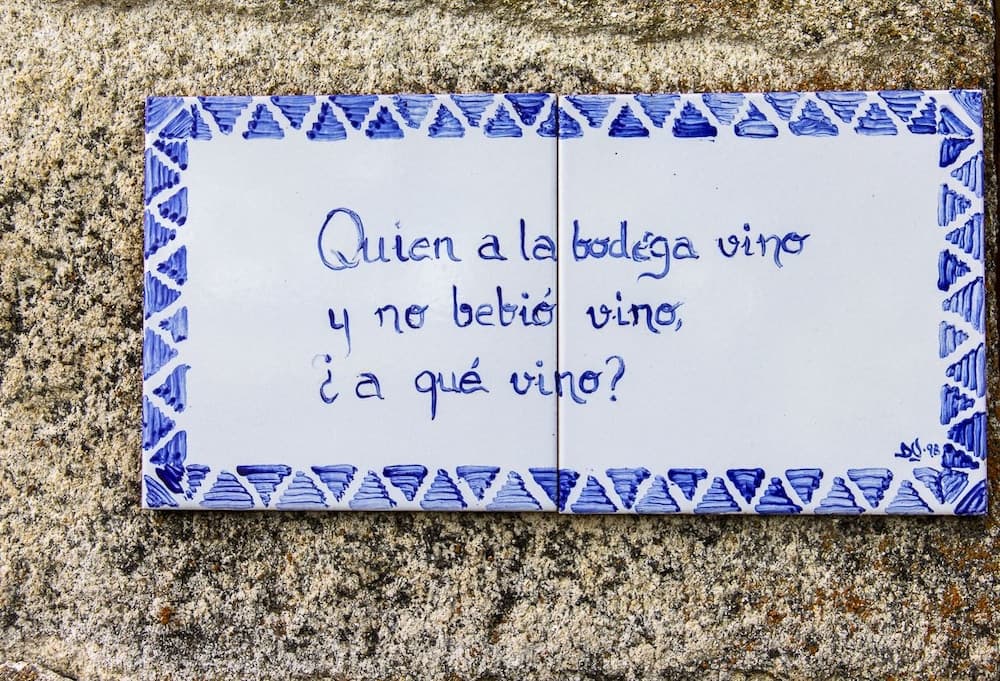 Quien a la bodéga vino
y no bebió vino,
¿a qué vino?